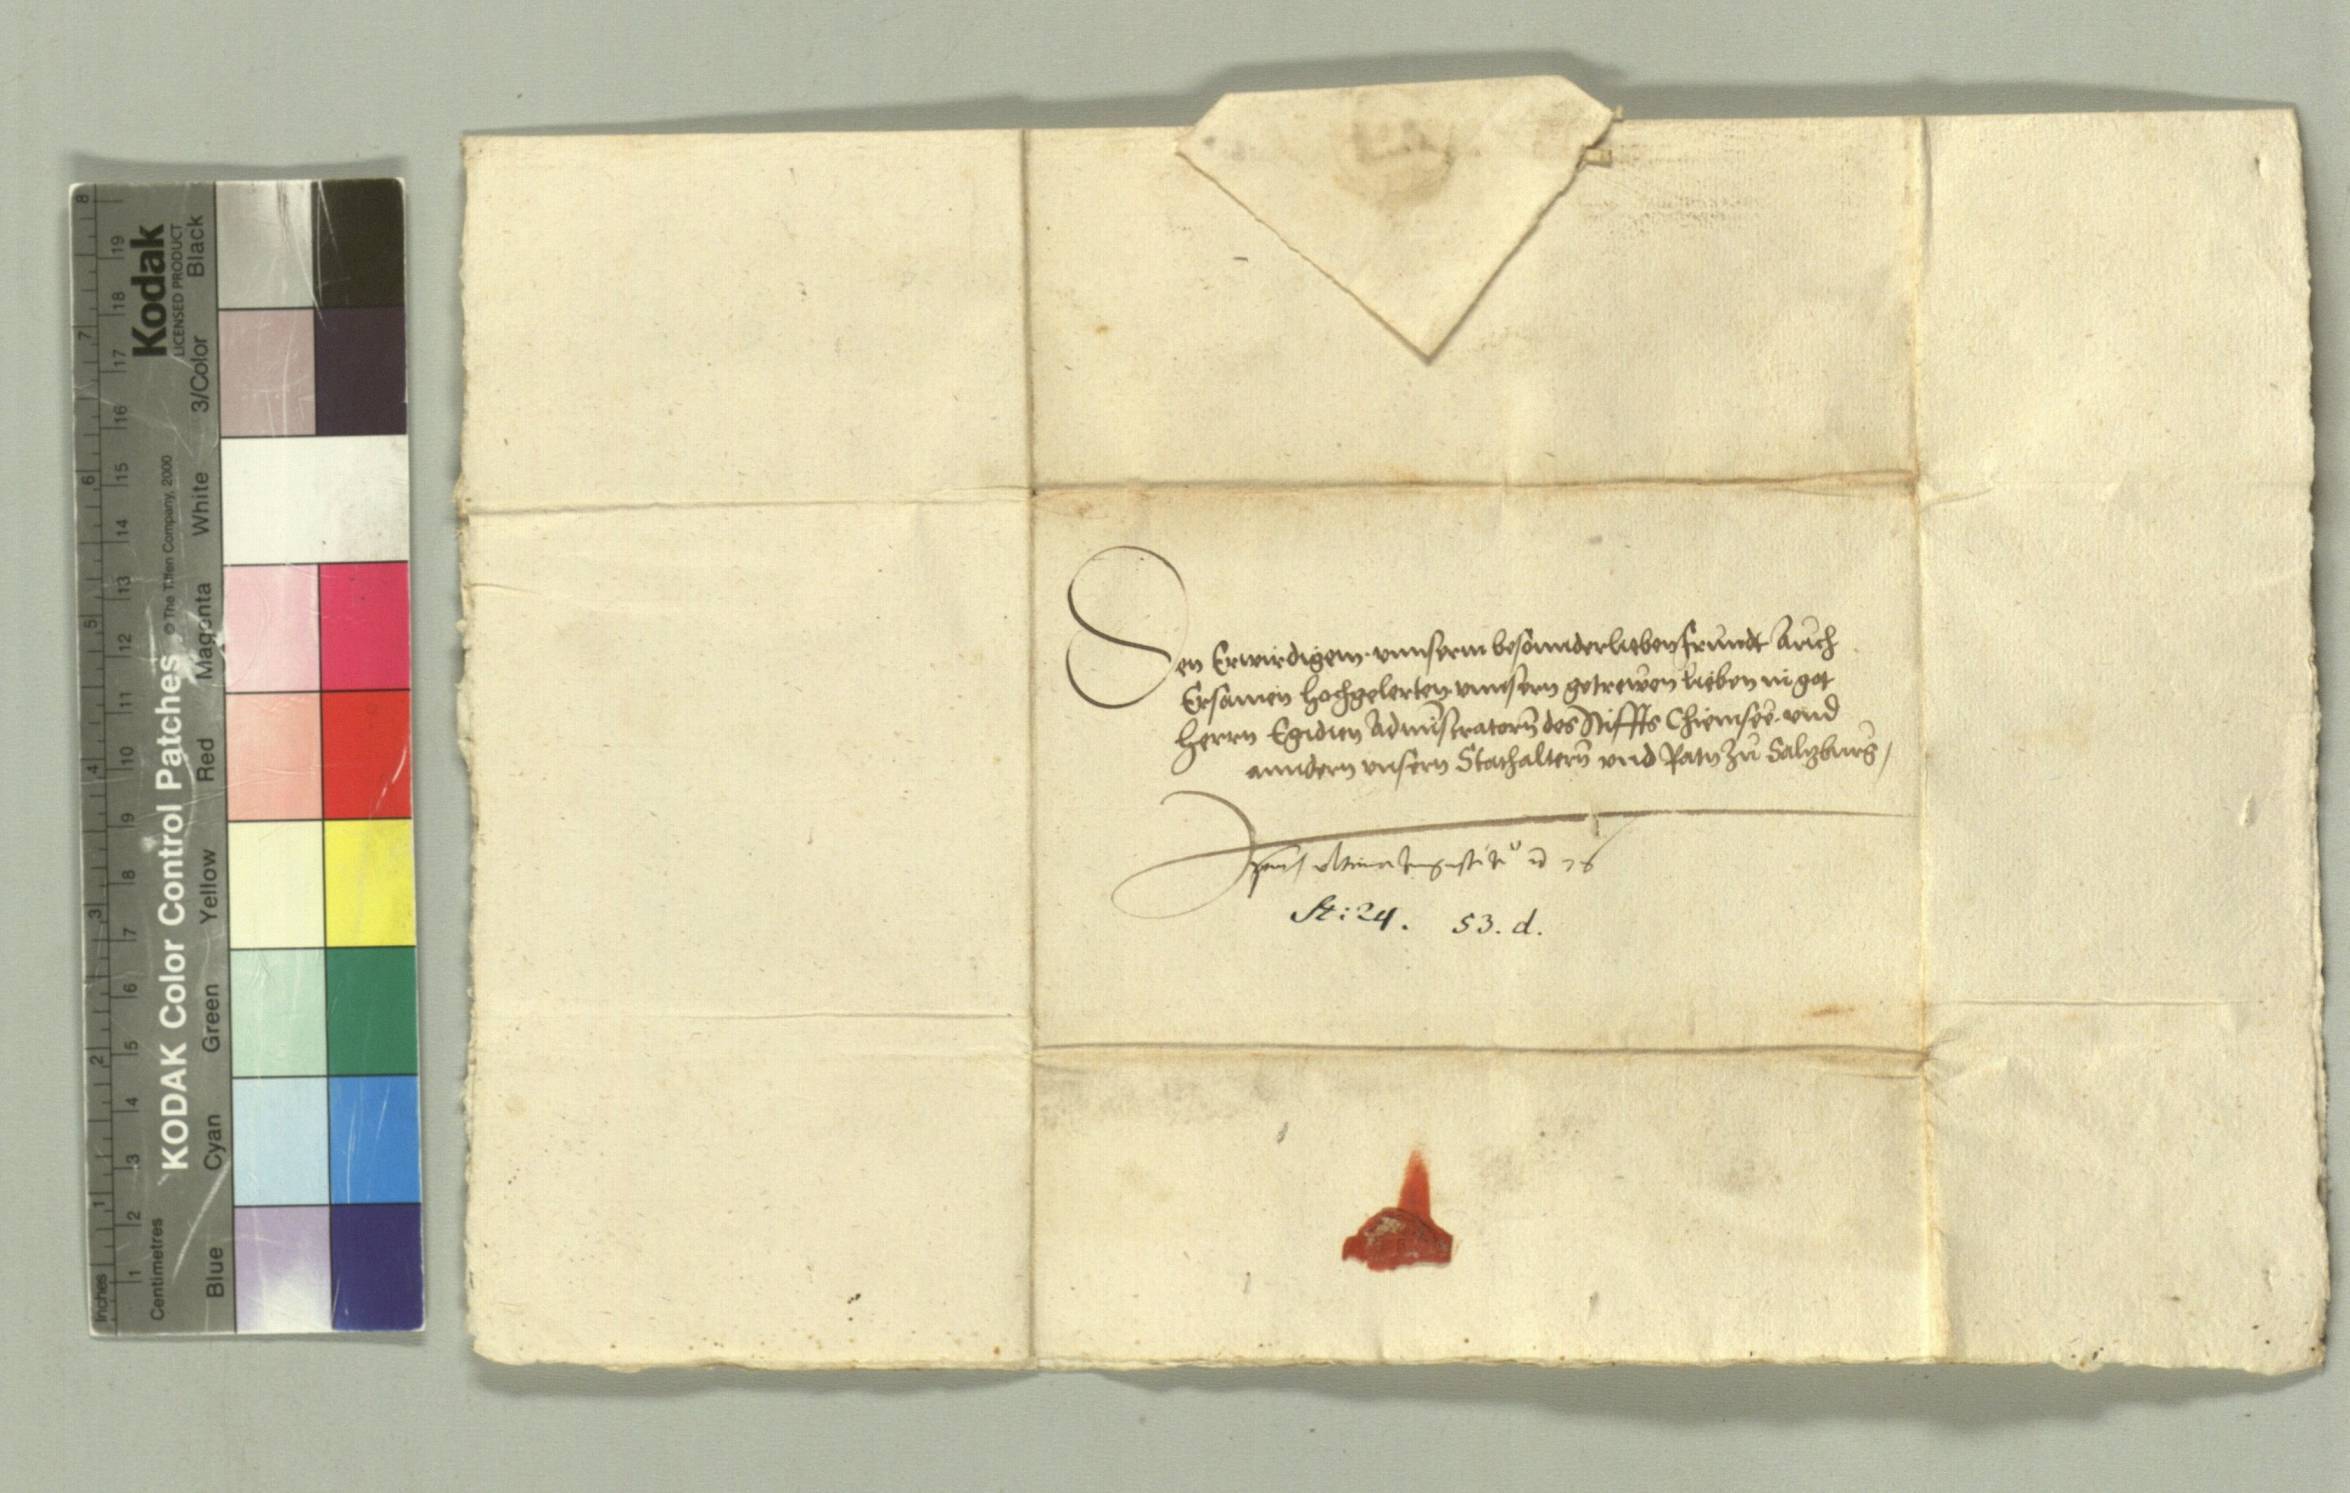 KODAK Color Control Patches
Kodak
LICENSED PRODUCT
© The Tiffen Company, 2000
Inches
1
2
3
4
5
6
7
8
Centimetres
1
2
3
4
5
6
7
8
9
10
11
12
13
14
15
16
17
18
19
Blue
Cyan
Green
Yellow
Red
Magenta
White
3/Color
Black
Den Erwirdigem vnnserm besonnderlieben frundt Auch
Ersamen hochgelerten vnnsern getrewen lieben in got
herrn Egidien Administratorn des Stiffts Chiemsee vnd
anndern vnsern Stathaltern vnd Rattn zu Saltzburg /
ultima Augusti
St: 24. 53. d.